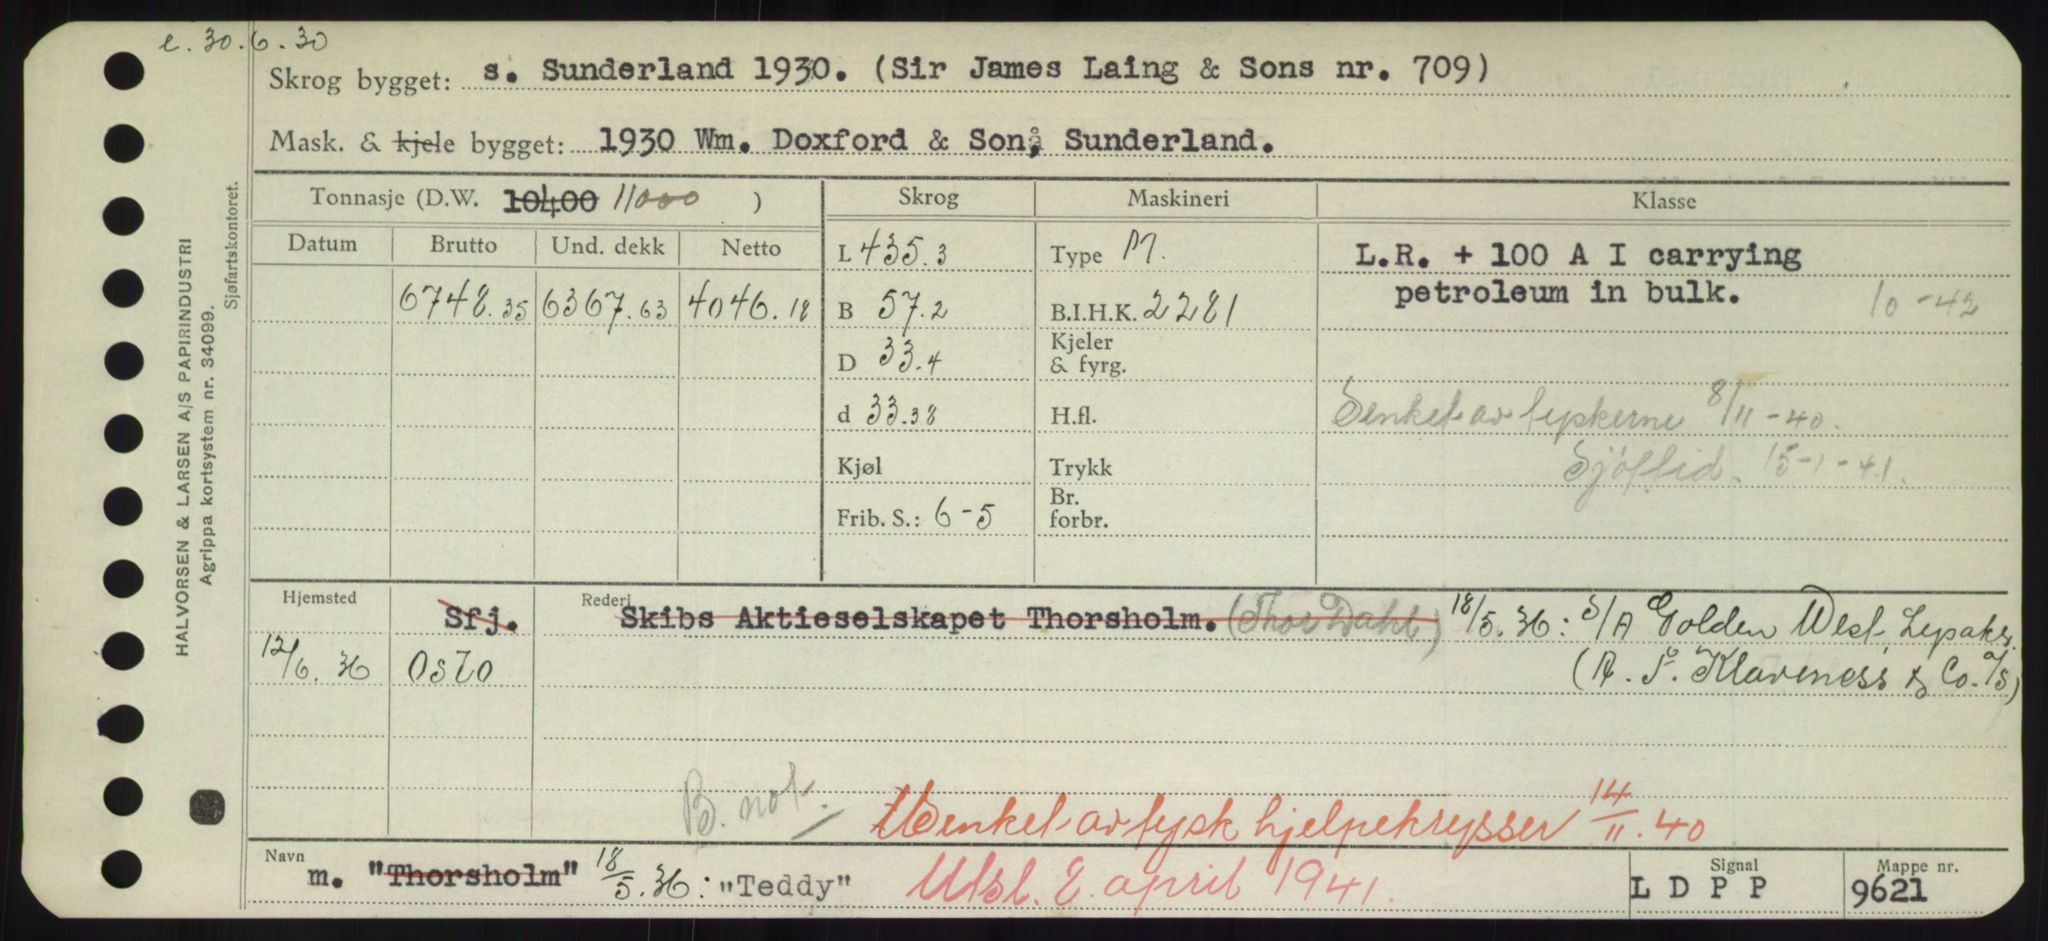 e. 30.6.30
Skrog bygget: s. Sunderland 1930. (Sir James Laing & Sons nr. 709)
Mask. & kjele bygget: 1930 Wm. Doxford & Son, Sunderland.
Tonnasje (D.W. 10400 11000 )
Skrog
Maskineri
Klasse
Datum Brutto Und. dekk Netto
6748.35 6367.63 4046.18
L 435.3
B 57.2
D 33.4
d 33.38
Kjøl
Frib. S.: 6-5
Type M.
B.I.H.K. 2281
Kjeler
& fyrg.
H.fl.
Trykk
Br.
forbr.
L.R. + 100 A I carrying
petroleum in bulk.
10-42
Senket av tyskerne 8/11-40.
Sjöftid. 15-1-41.
Hjemsted Sfj. Rederi Skibs Aktieselskapet Thorsholm. (Thor Dahl) 18/5.36: S/A Golden West,
12/6.36 Oslo (A. F. Klaveness & Co. A/S)
B. not.
Senket av tysk hjelpekrysser 14/11.40
Navn m. "Thorsholm" 18/5.36: "Teddy" Utsl. 2. april 1941.
Signal
LDPP
Mappe nr.
9621
HALVORSEN & LARSEN A/S PAPIRINDUSTRI
Agrippa kortsystem nr. 34099.
Sjøfartskontoret.